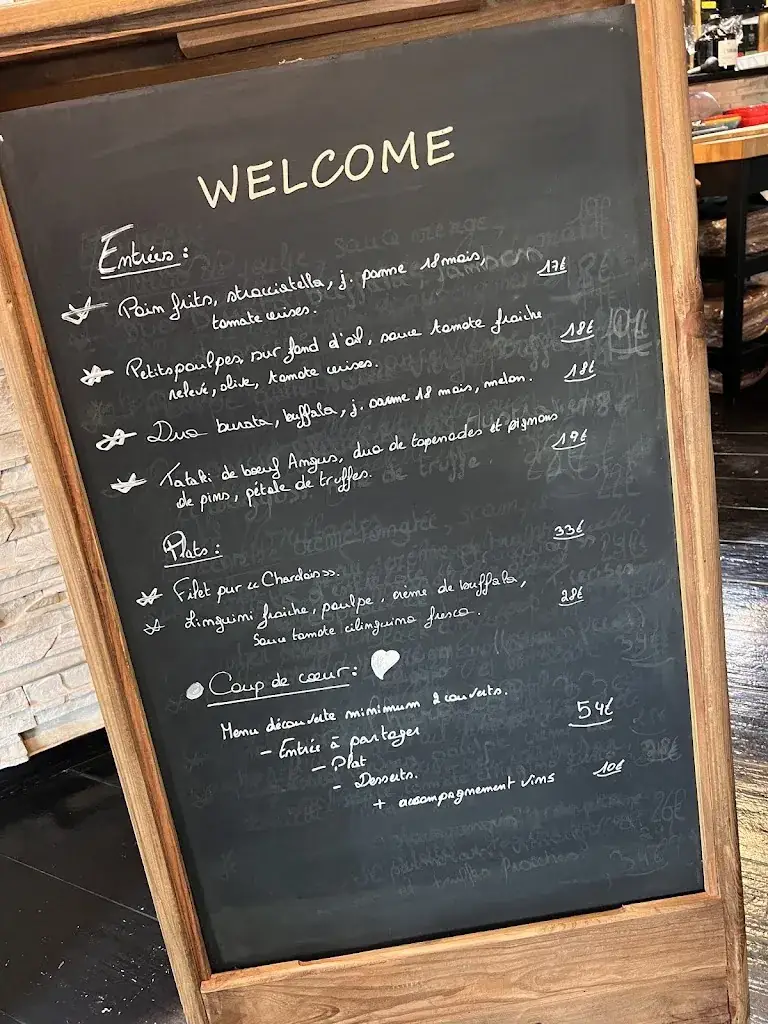 WELCOME
Entrées :
Pain frits, stracciatella, j. parme 18 mois, 17€
tomate cerises.
Petits poulpes, sur fond d'ail, sauce tomate fraiche 18€
relevé, olive, tomate cerises.
Duo burata, buffala, j. parme 18 mois, melon. 18€
Tataki de boeuf Angus, duo de tapenades et pignons 19€
de pins, pétale de truffes.
Plats : 33€
Filet pur "Charolais".
Linguini fraiche, poulpe, crème de buffala, 28€
Sauce tomate ciliegino fresca.
Coup de cœur :
Menu découverte minimum 2 couverts.
- Entrée à partager 54€
- Plat
- Desserts.
+ accompagnement vins 10€